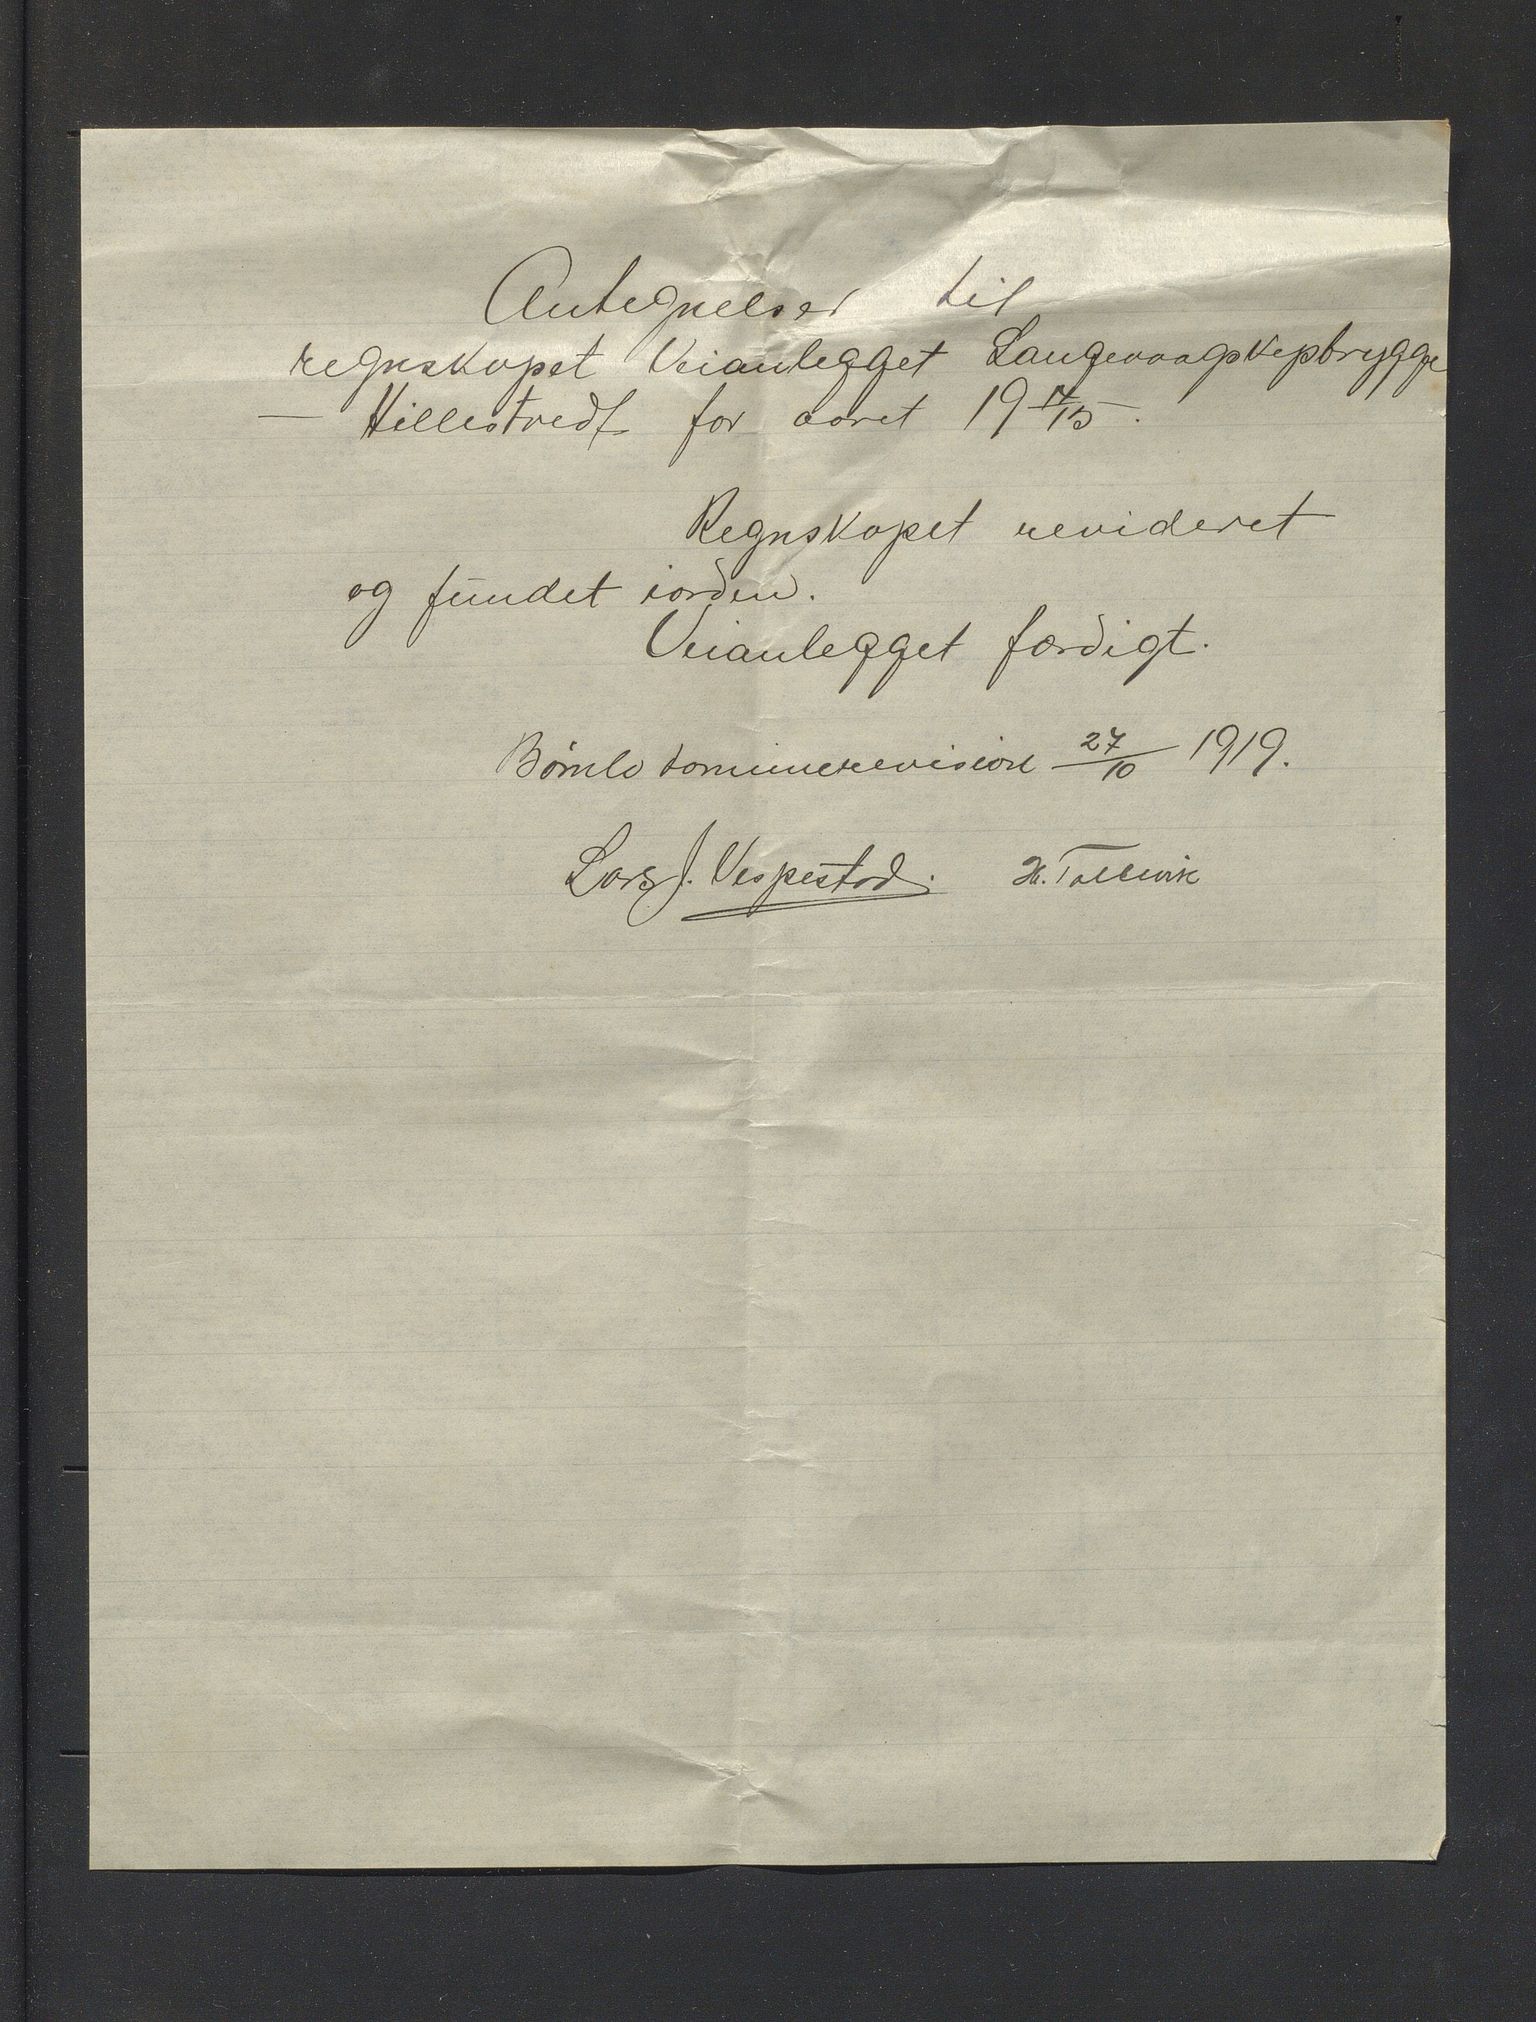 Antegnelser til
regnskapet Veianlegget Langevaagskipbrygge
— Hillestvedt for aaret 19 14/15.
Regnskapet revideret
og fundet iorden.
Veianlegget færdigt.
Bømlo komunerevision 27/10 1919.
Lars J. Vespestad. H. Tollevik